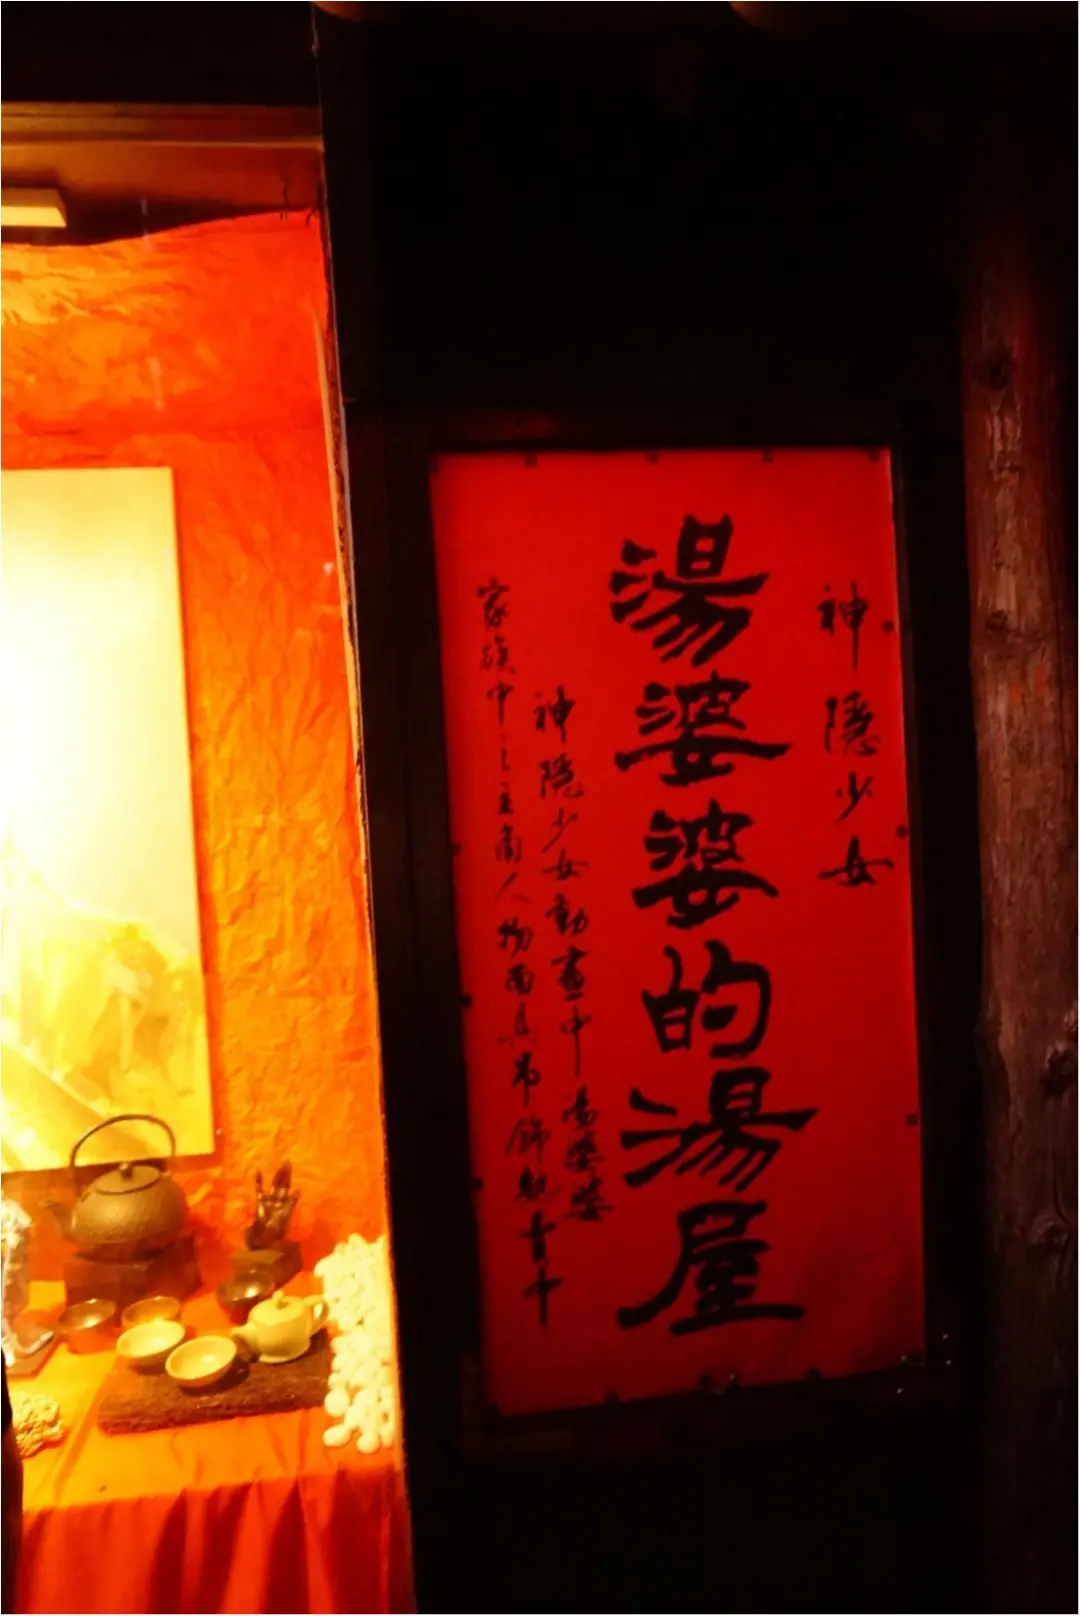 神隱少女
湯婆婆的湯屋
神隱少女動畫中湯婆婆
家族中之主角人物面具吊飾販賣中